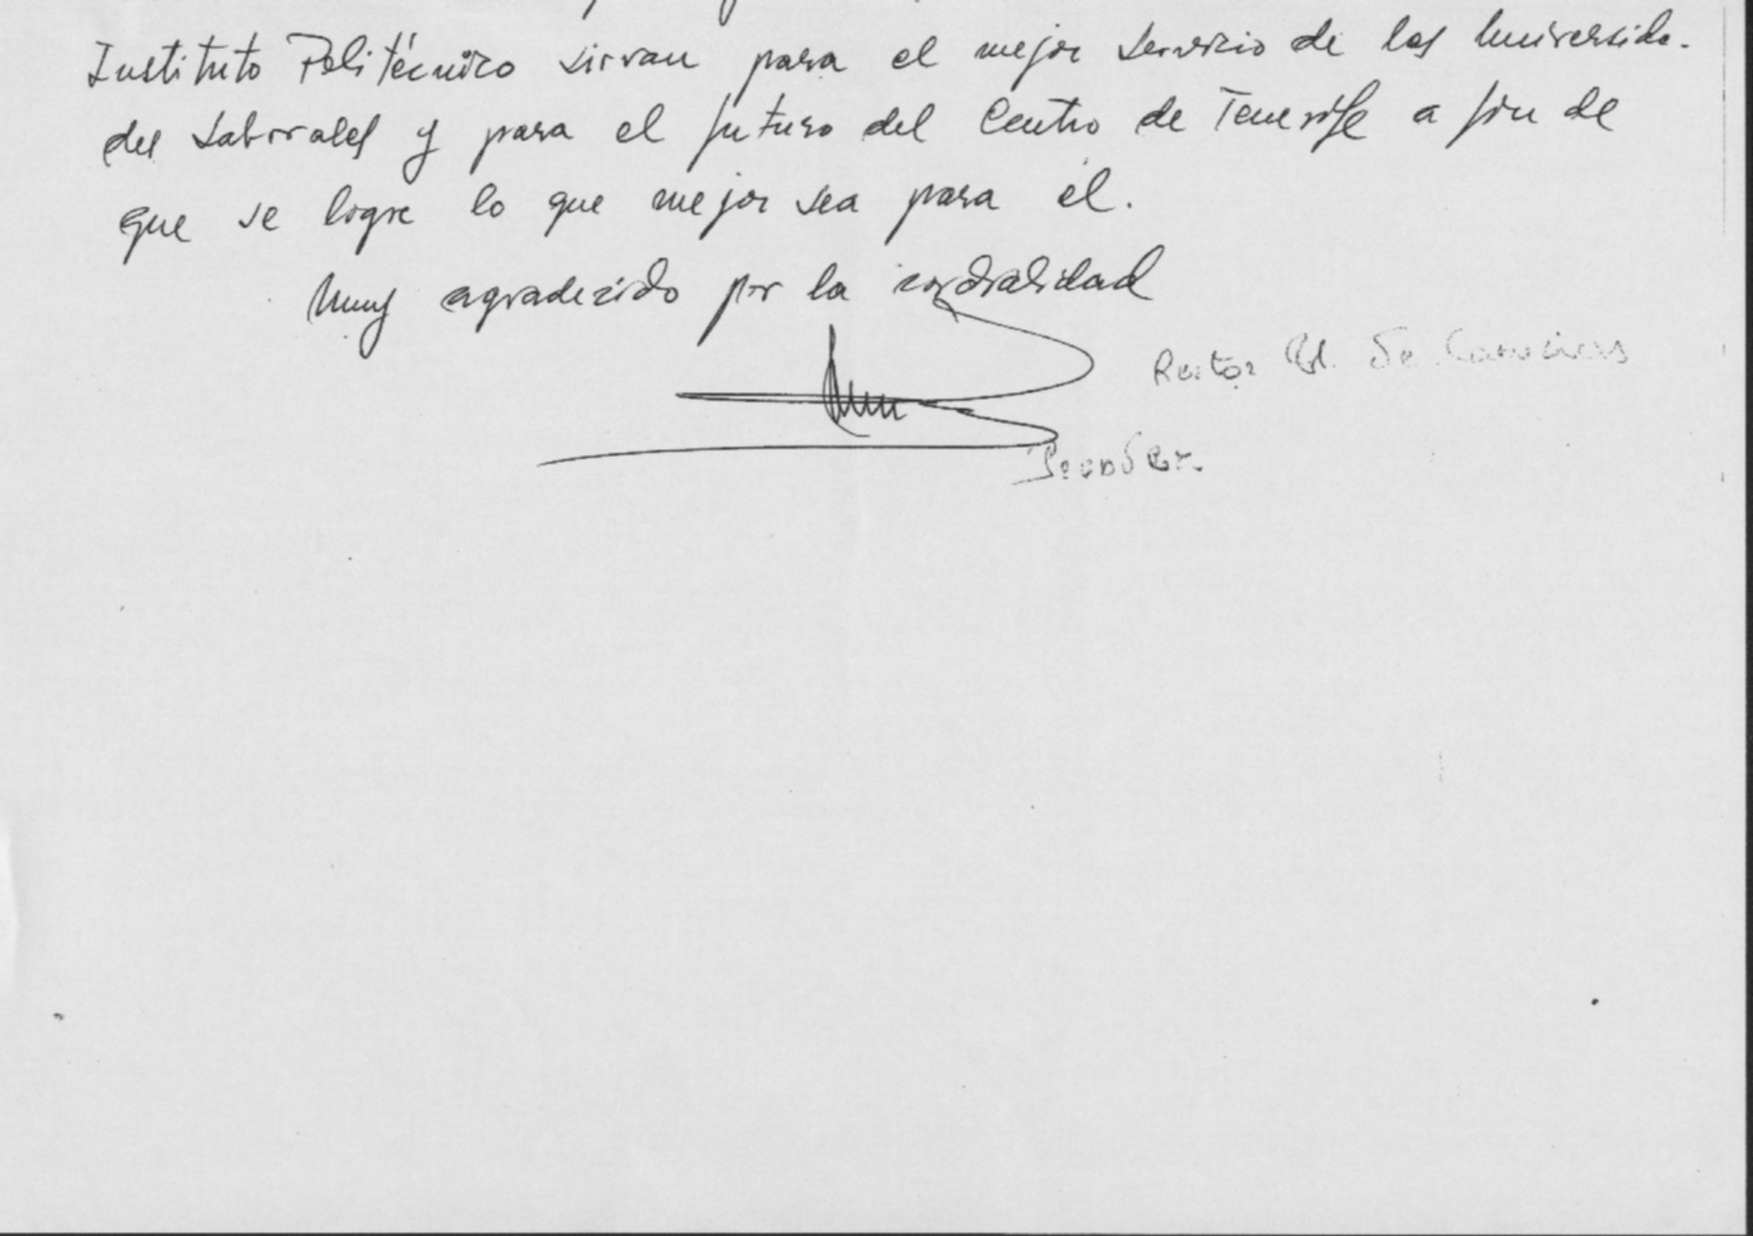 Instituto Politécnico sirvan para el mejor servicio de las Universida-
des Laborales y para el futuro del Centro de Tenerife a fin de
que se logre lo que mejor sea para él.
Muy agradecido por la cordialidad
Rector de Canarias